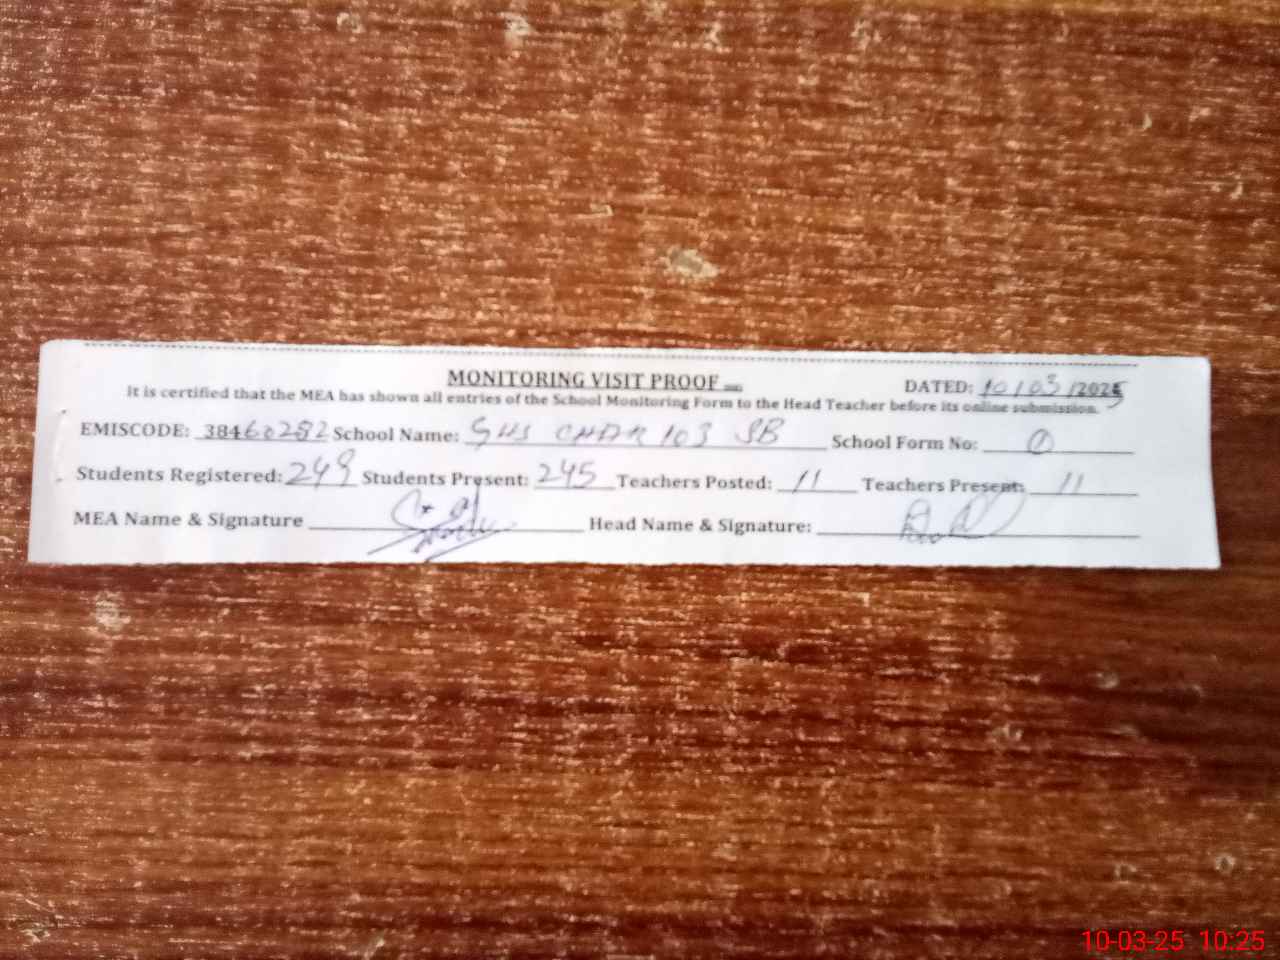 MONITORING VISIT PROOF
DATED: 10/03/2025
It is certified that the MEA has shown all entries of the School Monitoring Form to the Head Teacher before its online submission.
EMISCODE: 38460252 School Name: GHS CHAK 103 SB School Form No: 0
Students Registered: 249 Students Present: 245 Teachers Posted: 11 Teachers Present: 11
MEA Name & Signature Head Name & Signature:
10-03-25 10:25